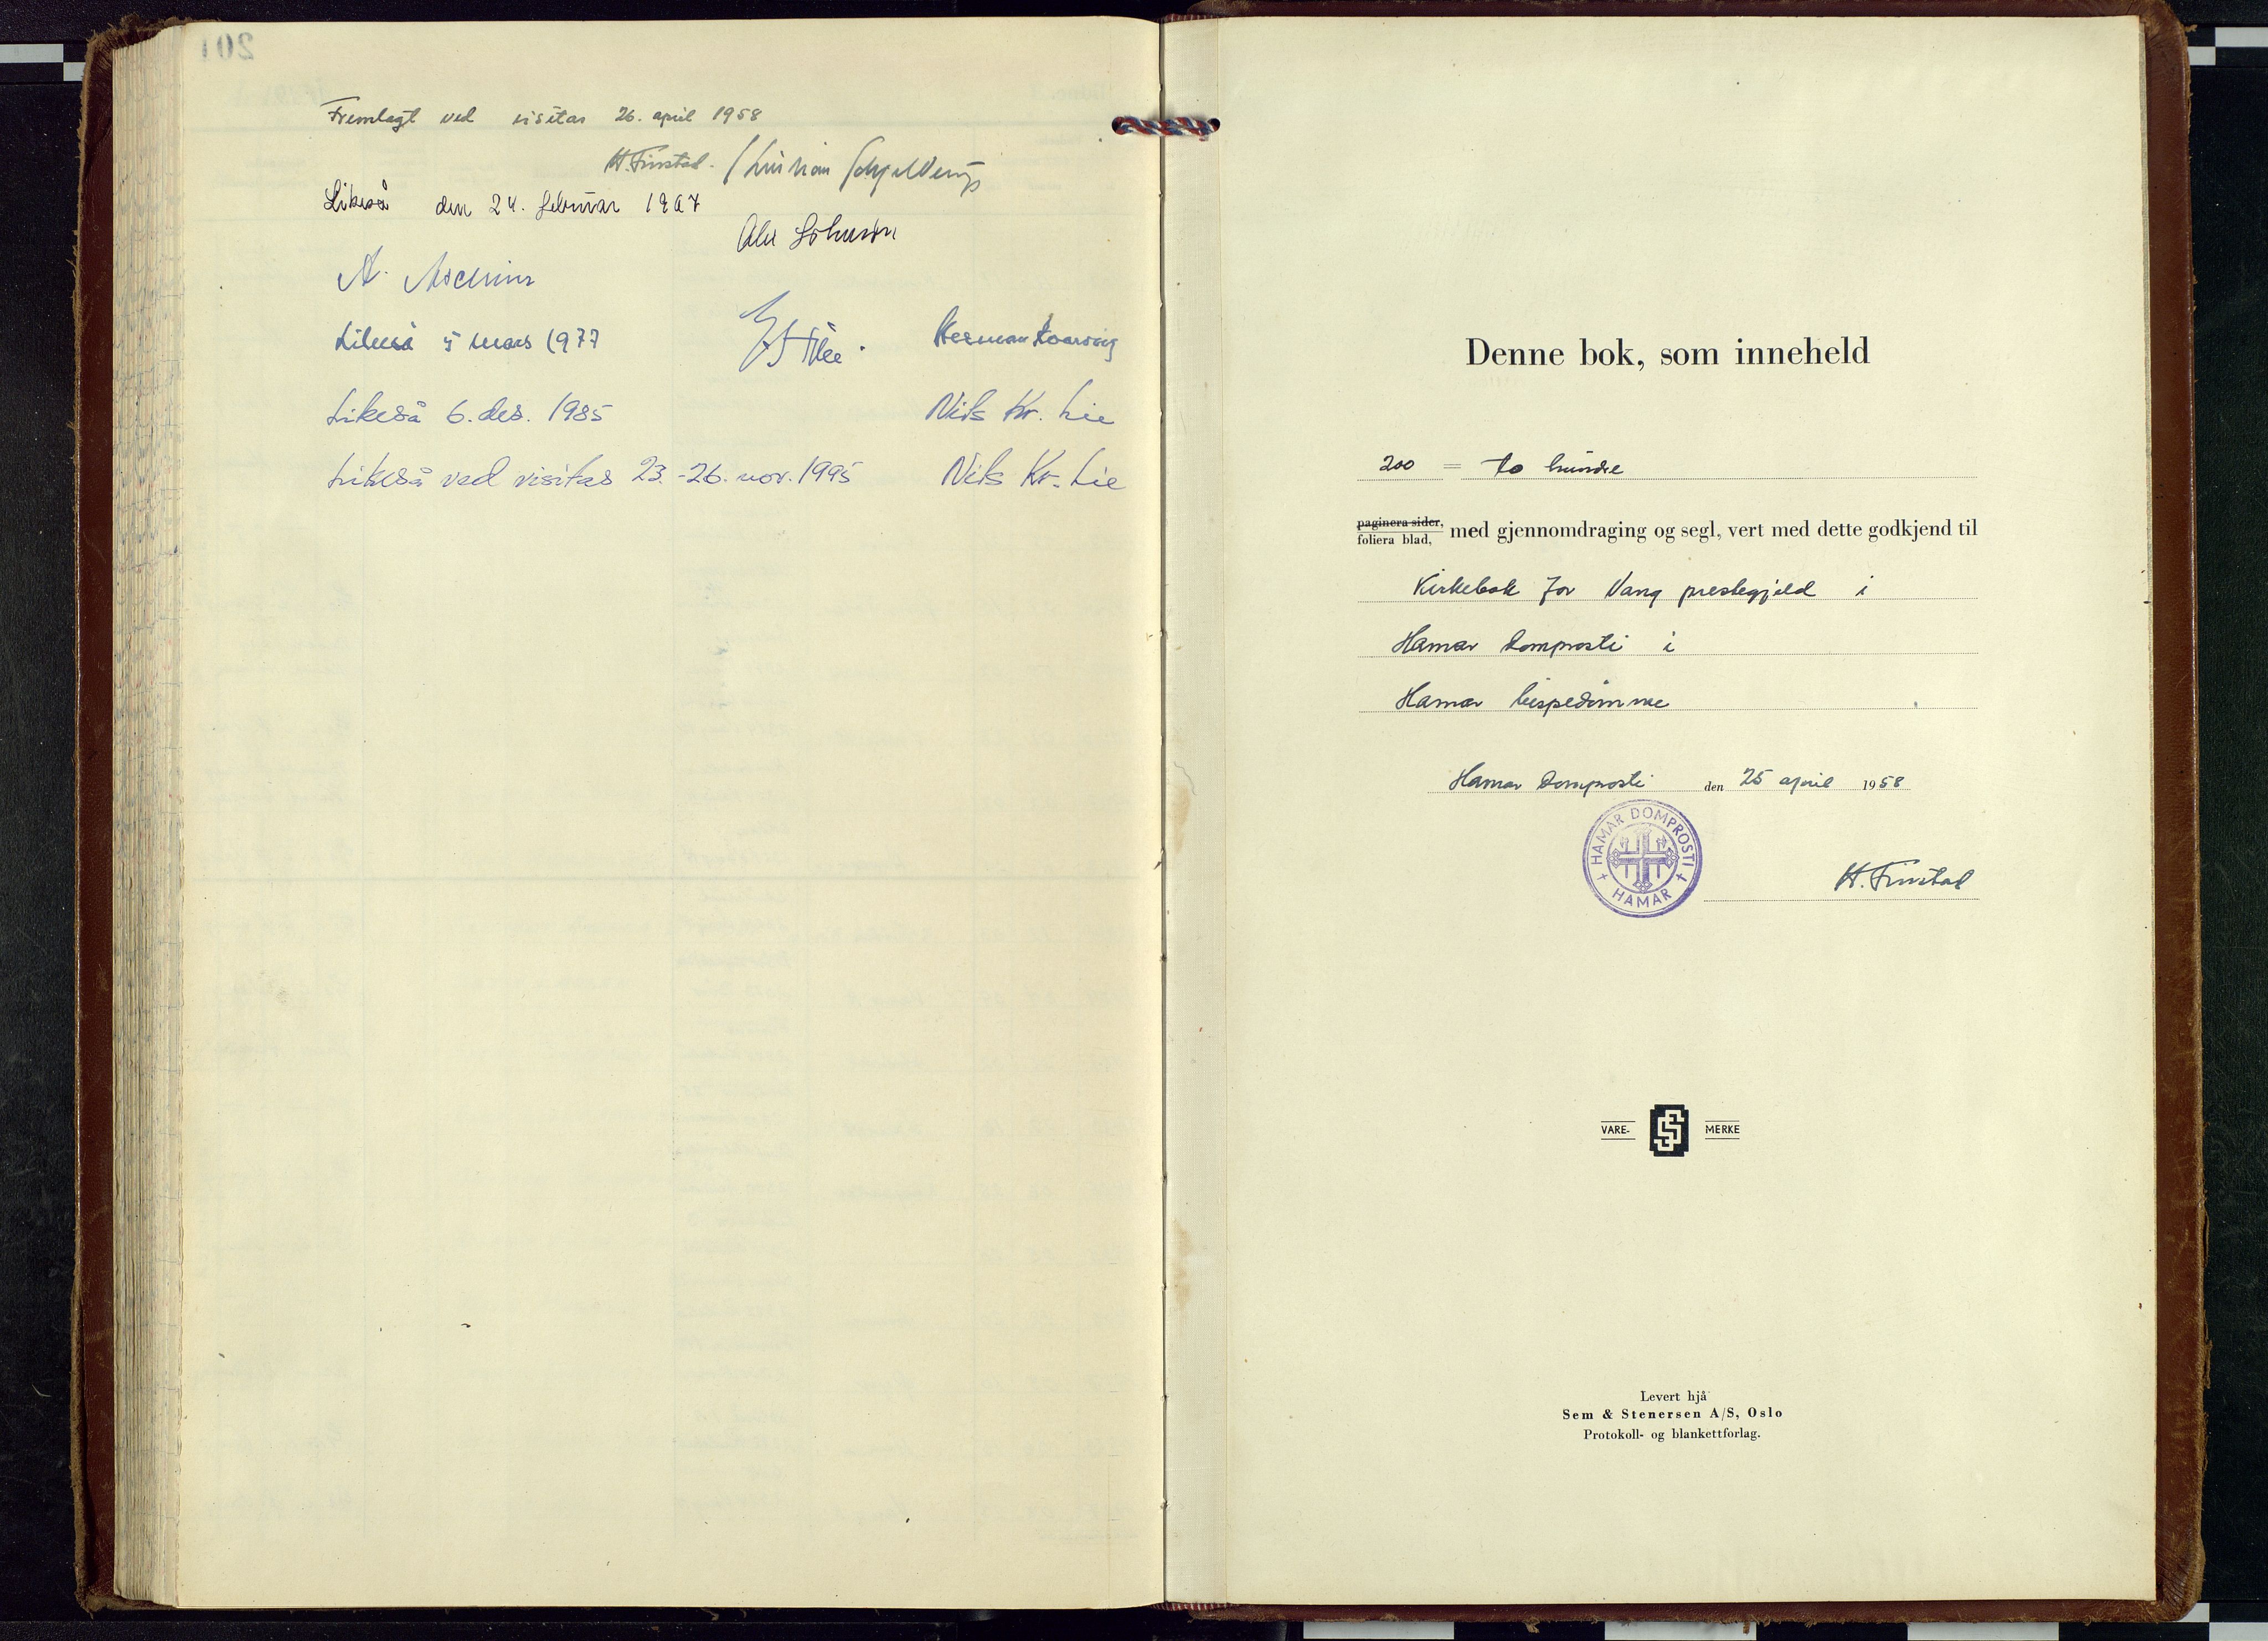 201
Fremlagt ved visitas 26. april 1958
H. Finstad. Kristian Schjelderup
Likeså den 24. februar 1967
Alex Johnson
A.
Likeså 5 mars 1977
Likeså 6. des. 1985 Nils Kr. Lie
Likeså ved visitas 23.-26. nov. 1995 Nils Kr. Lie
Denne bok, som inneheld
200 = to hundre
paginera sider,
foliera blad, med gjennomdraging og segl, vert med dette godkjend til
Kirkebok for Vang prestegjeld i
Hamar Domprosti i
Hamar bispedömme
Hamar Domprosti den 25 april 1958
HAMAR DOMPROSTI
HAMAR
H. Finstad
VARE- MERKE
Levert hjå
Sem & Stenersen A/S, Oslo
Protokoll- og blankettforlag.